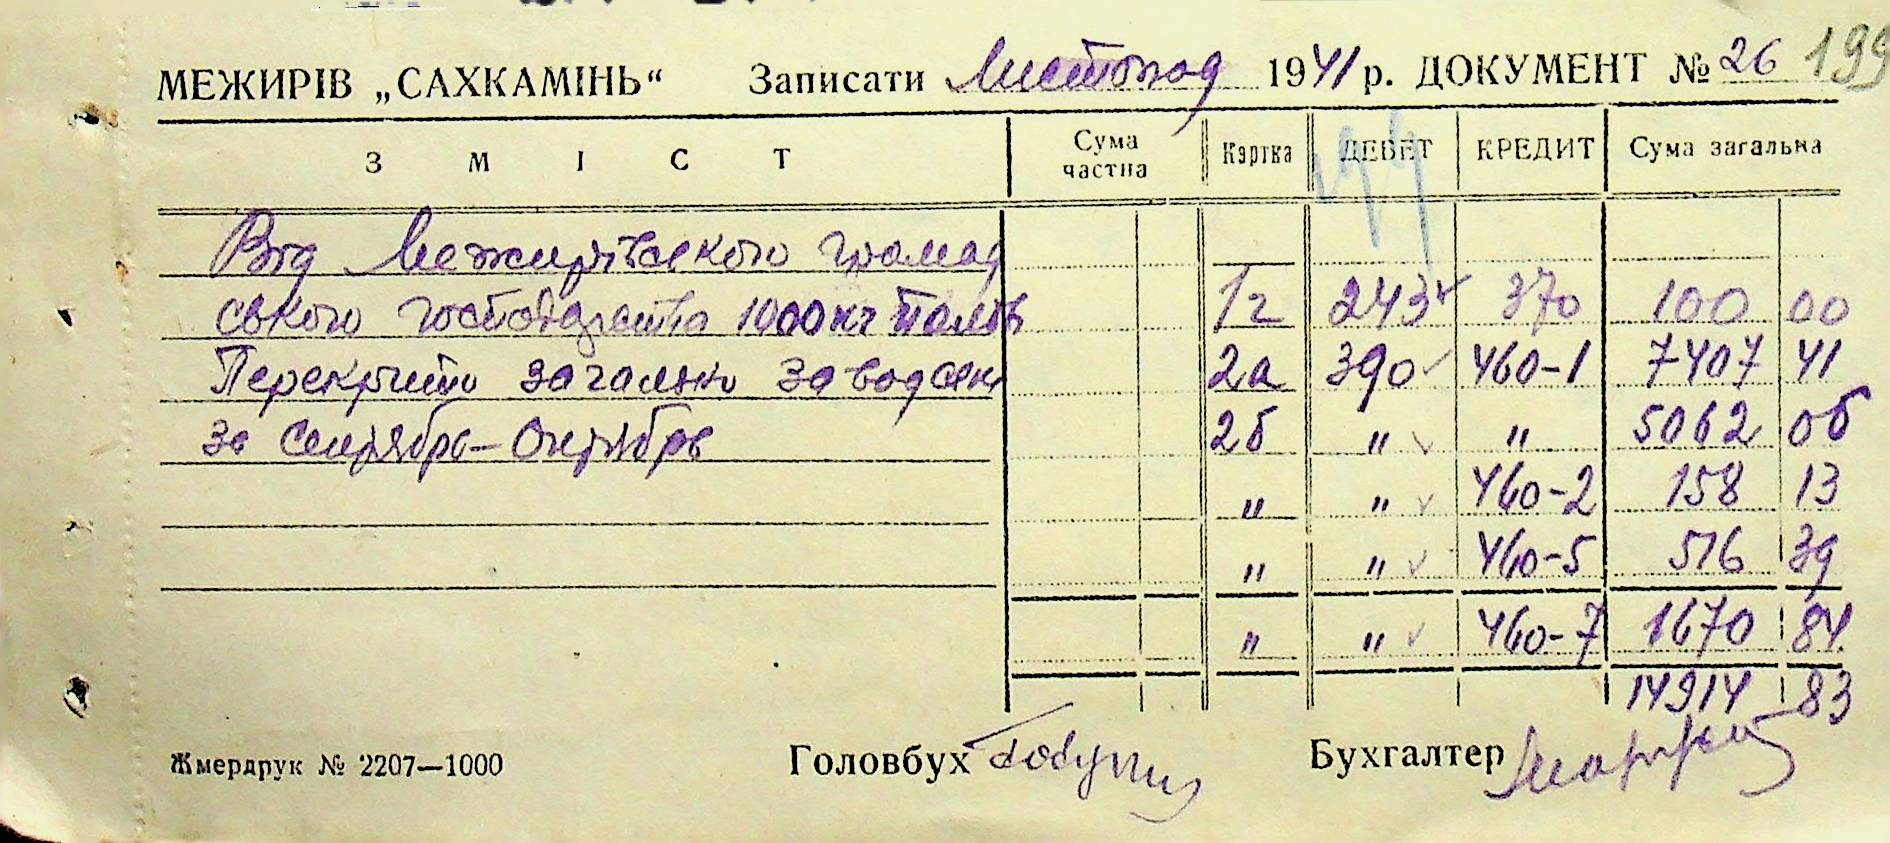 МЕЖИРІВ „САХКАМІНЬ“ Записати Листопад 1941 р. ДОКУМЕНТ № 26 199
З М І С Т Сума частна Картка ДЕБЕТ КРЕДИТ Сума загальна
199
Від Межирівского громад
ського господарства 1000 кг полов 1г 243 370 100 00
Перекрито загально заводські 2а 390 460-1 7407 41
за Сентябрь-Октябрь 2б " " 5062 06
" " 460-2 158 13
" " 460-5 516 39
" " 460-7 1670 84
14914 83
Жмердрук № 2207—1000 Головбух Бухгалтер